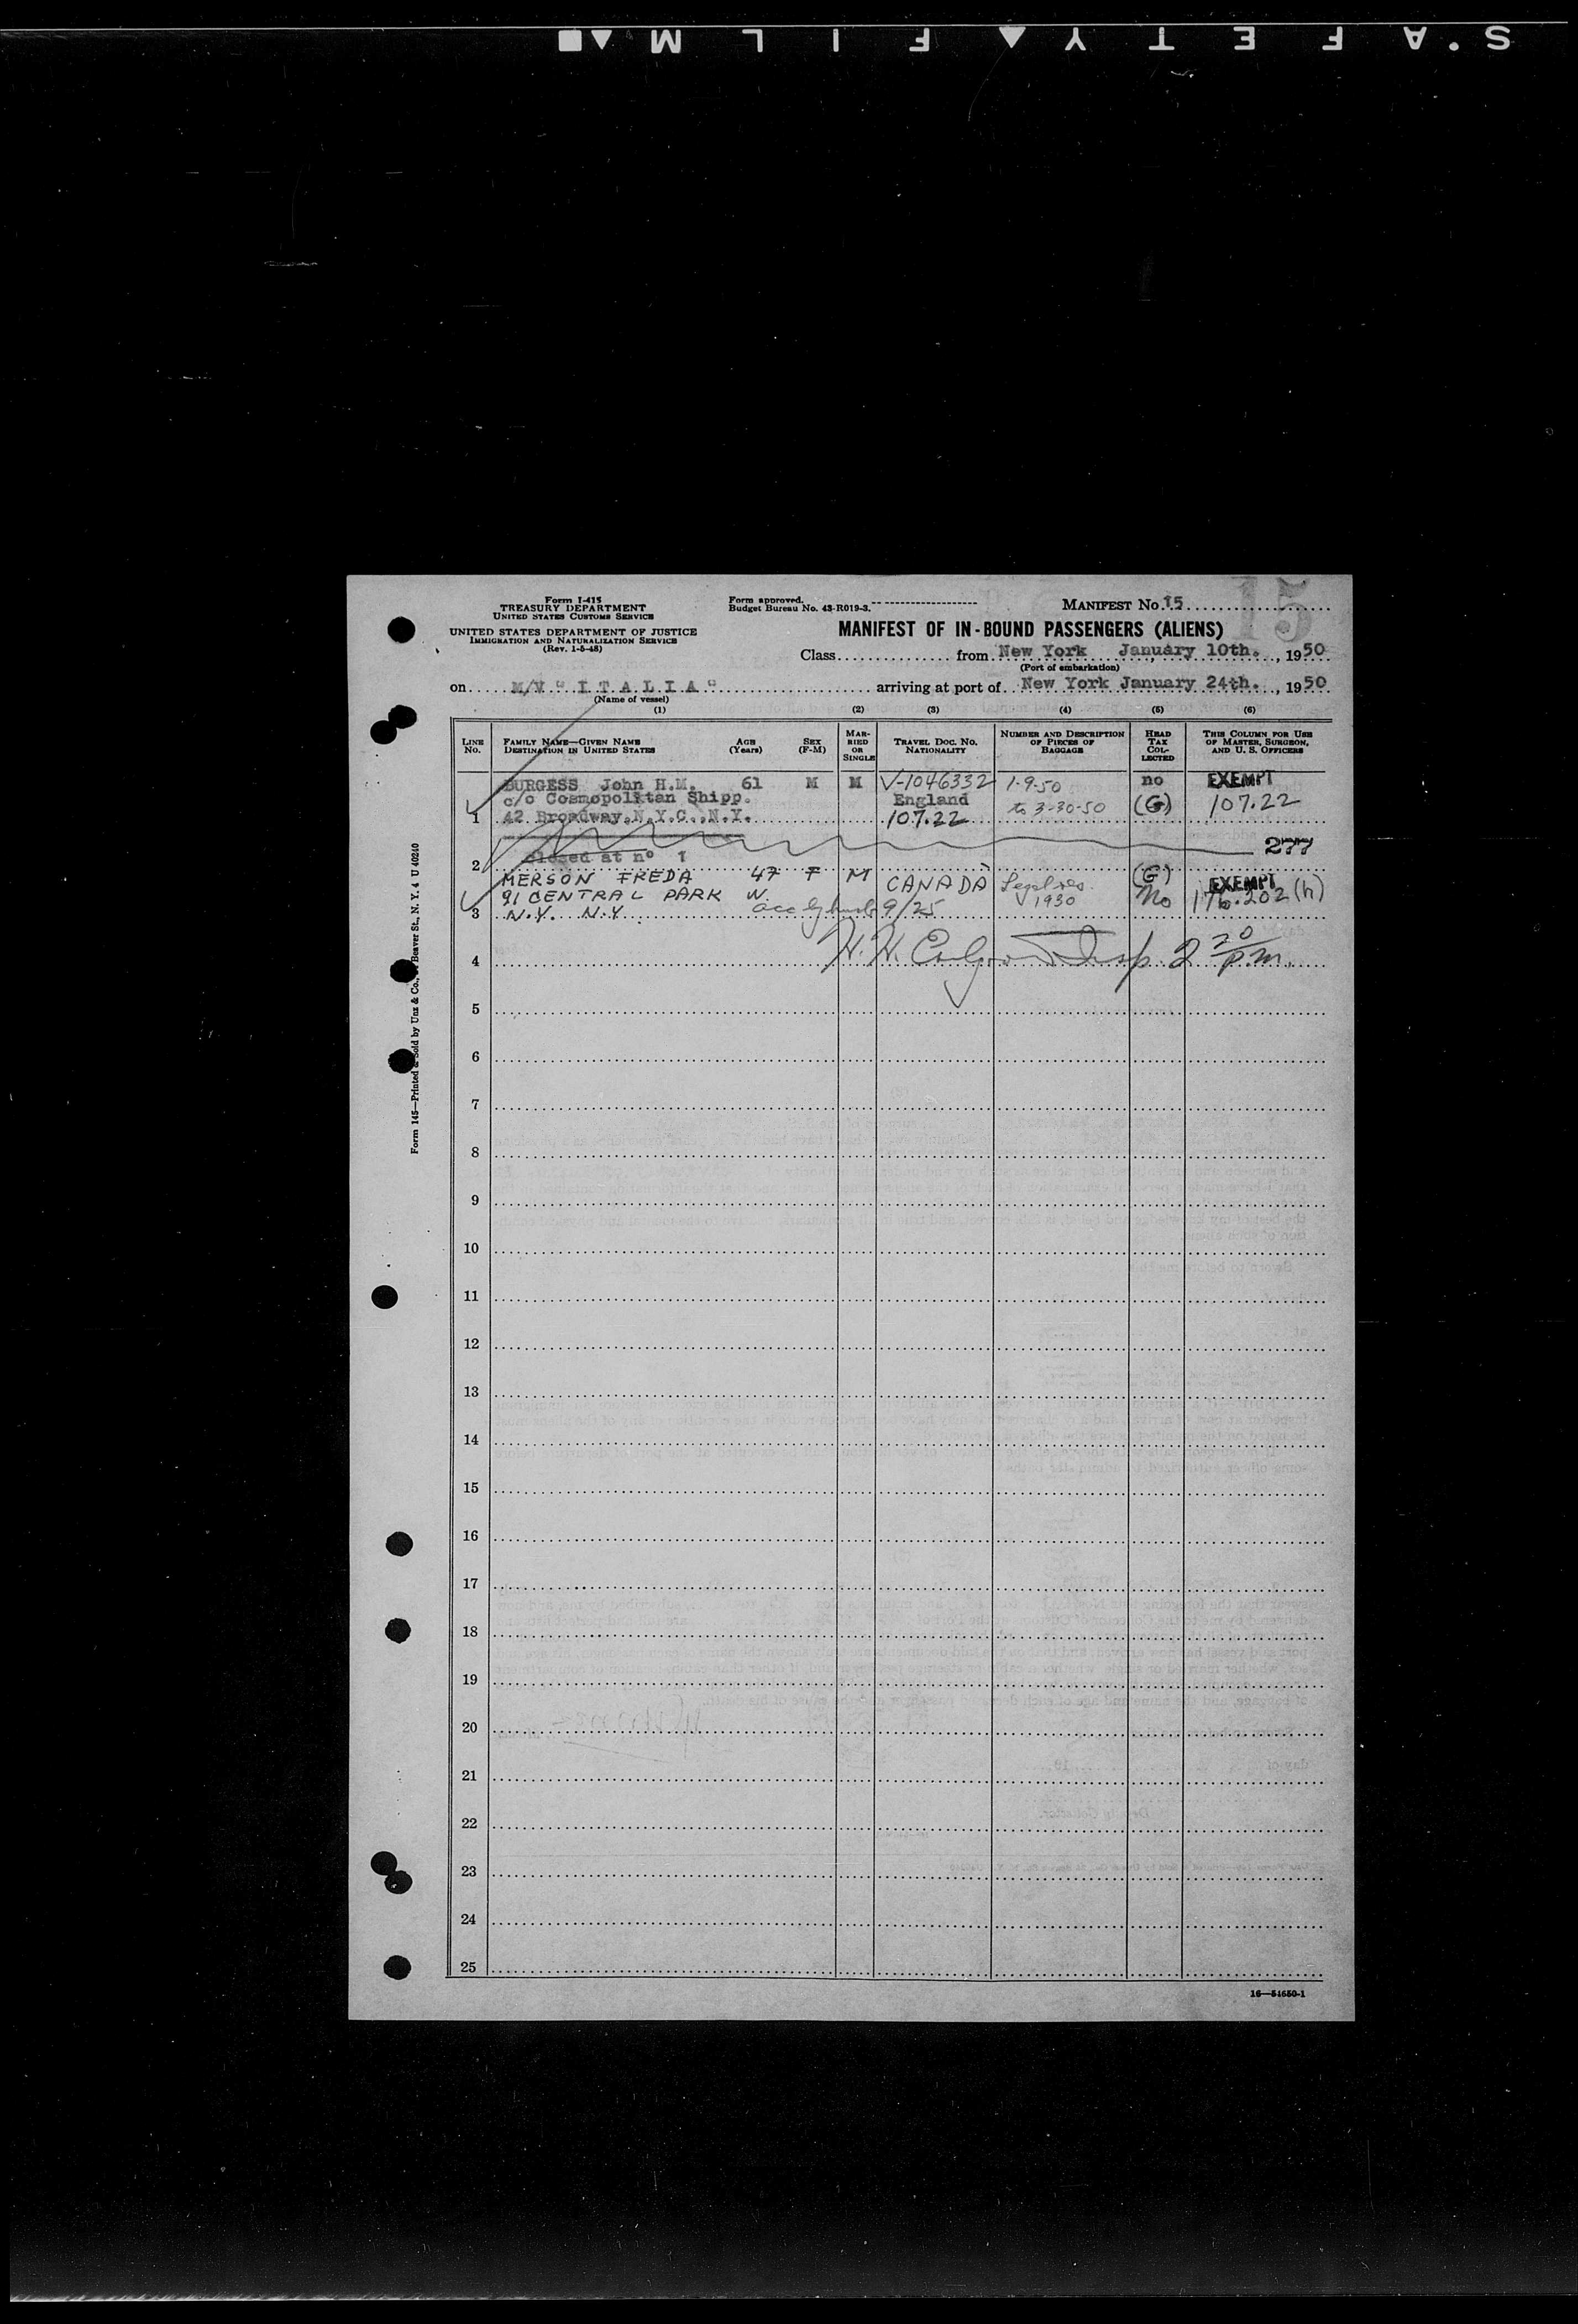 S.AFETY FILM
Form I-415
TREASURY DEPARTMENT
UNITED STATES CUSTOMS SERVICE
UNITED STATES DEPARTMENT OF JUSTICE
IMMIGRATION AND NATURALIZATION SERVICE
(Rev. 1-5-48)
Form approved.
Budget Bureau No. 43-R019-3.
MANIFEST No. 15
15
MANIFEST OF IN-BOUND PASSENGERS (ALIENS)
Class from New York January 10th. , 1950
(Port of embarkation)
on M/V " I T A L I A " arriving at port of New York January 24th. , 1950
(Name of vessel)
(1) (2) (3) (4) (5) (6)
LINE NO. FAMILY NAME—GIVEN NAME DESTINATION IN UNITED STATES AGE (Years) SEX (F-M) MARRIED OR SINGLE TRAVEL DOC. NO. NATIONALITY NUMBER AND DESCRIPTION OF PIECES OF BAGGAGE HEAD TAX COLLECTED THIS COLUMN FOR USE OF MASTER, SURGEON, AND U. S. OFFICERS
BURGESS John H.M. 61 M M V-1046332 1-9-50 no EXEMPT
c/o Cosmopolitan Shipp. England to 3-30-50 (G) 107.22
1 42 Broadway,N.Y.C.,N.Y. 107.22
277
2 closed at n° 1
MERSON FREDA 47 F M CANADA Legal res. (G) EXEMPT
91 CENTRAL PARK W. 1930 No 176.202 (h)
3 N.Y. N.Y. acc by husb 9/25
4 H. H. Insp. 2 20 p.m.
5
6
7
8
9
10
11
12
13
14
15
16
17
18
19
20
21
22
23
24
25
16—54650-1
Form 145—Printed & Sold by Unz & Co., Beaver St., N. Y. 4 U 40240